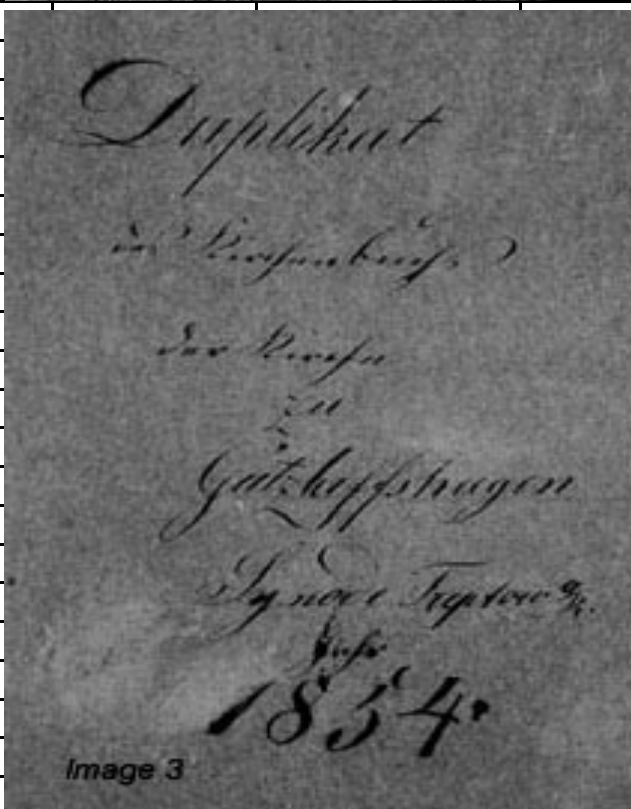 Duplikat
des Kirchenbuchs
der Kirche
zu
Gützlaffshagen
Synode Treptow a/R.
Jahr
1854.
Image 3